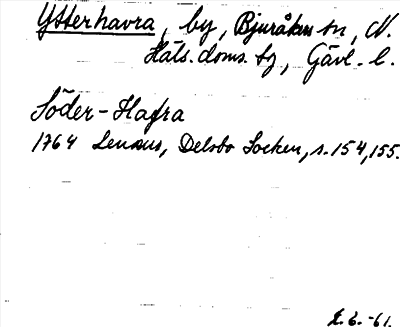 Ytterhavra, by, Bjuråkers sn, N.
Häls. doms. sg, Gävl. l.
Söder-Hafra
1764 Lenæus, Delsbo Socken, s. 154, 155.
E.6.-61.